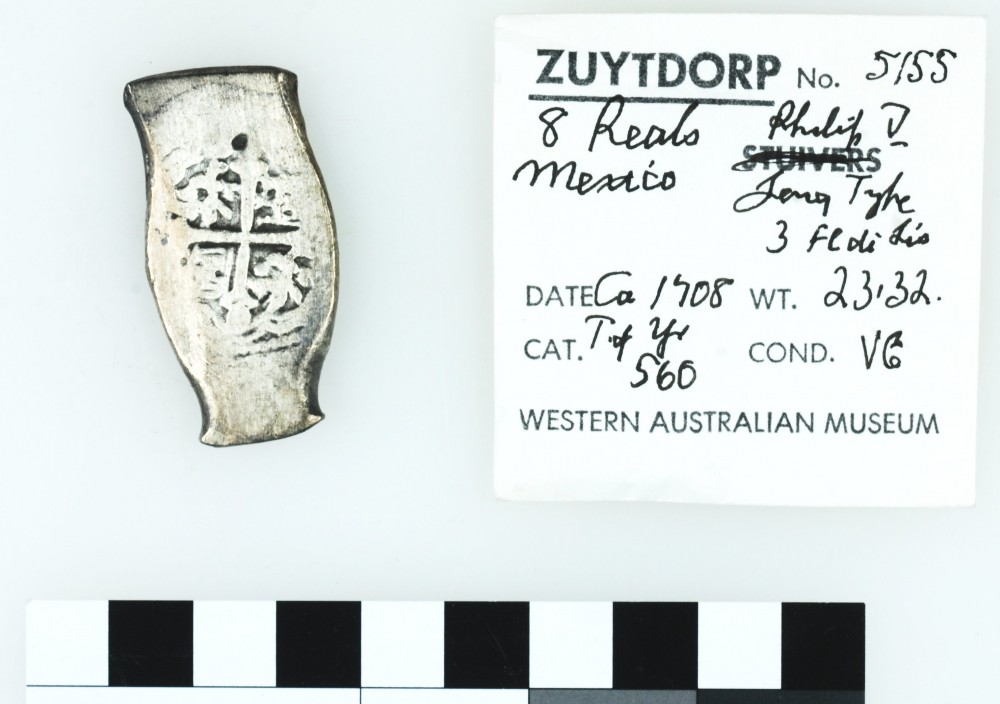 ZUYTDORP No. 5155
8 Reals Philip V
Mexico STUIVERS
Type
3 Fl di Lis
DATE Ca 1708 WT. 23.32.
CAT. T. of Yr COND. VG
560
WESTERN AUSTRALIAN MUSEUM